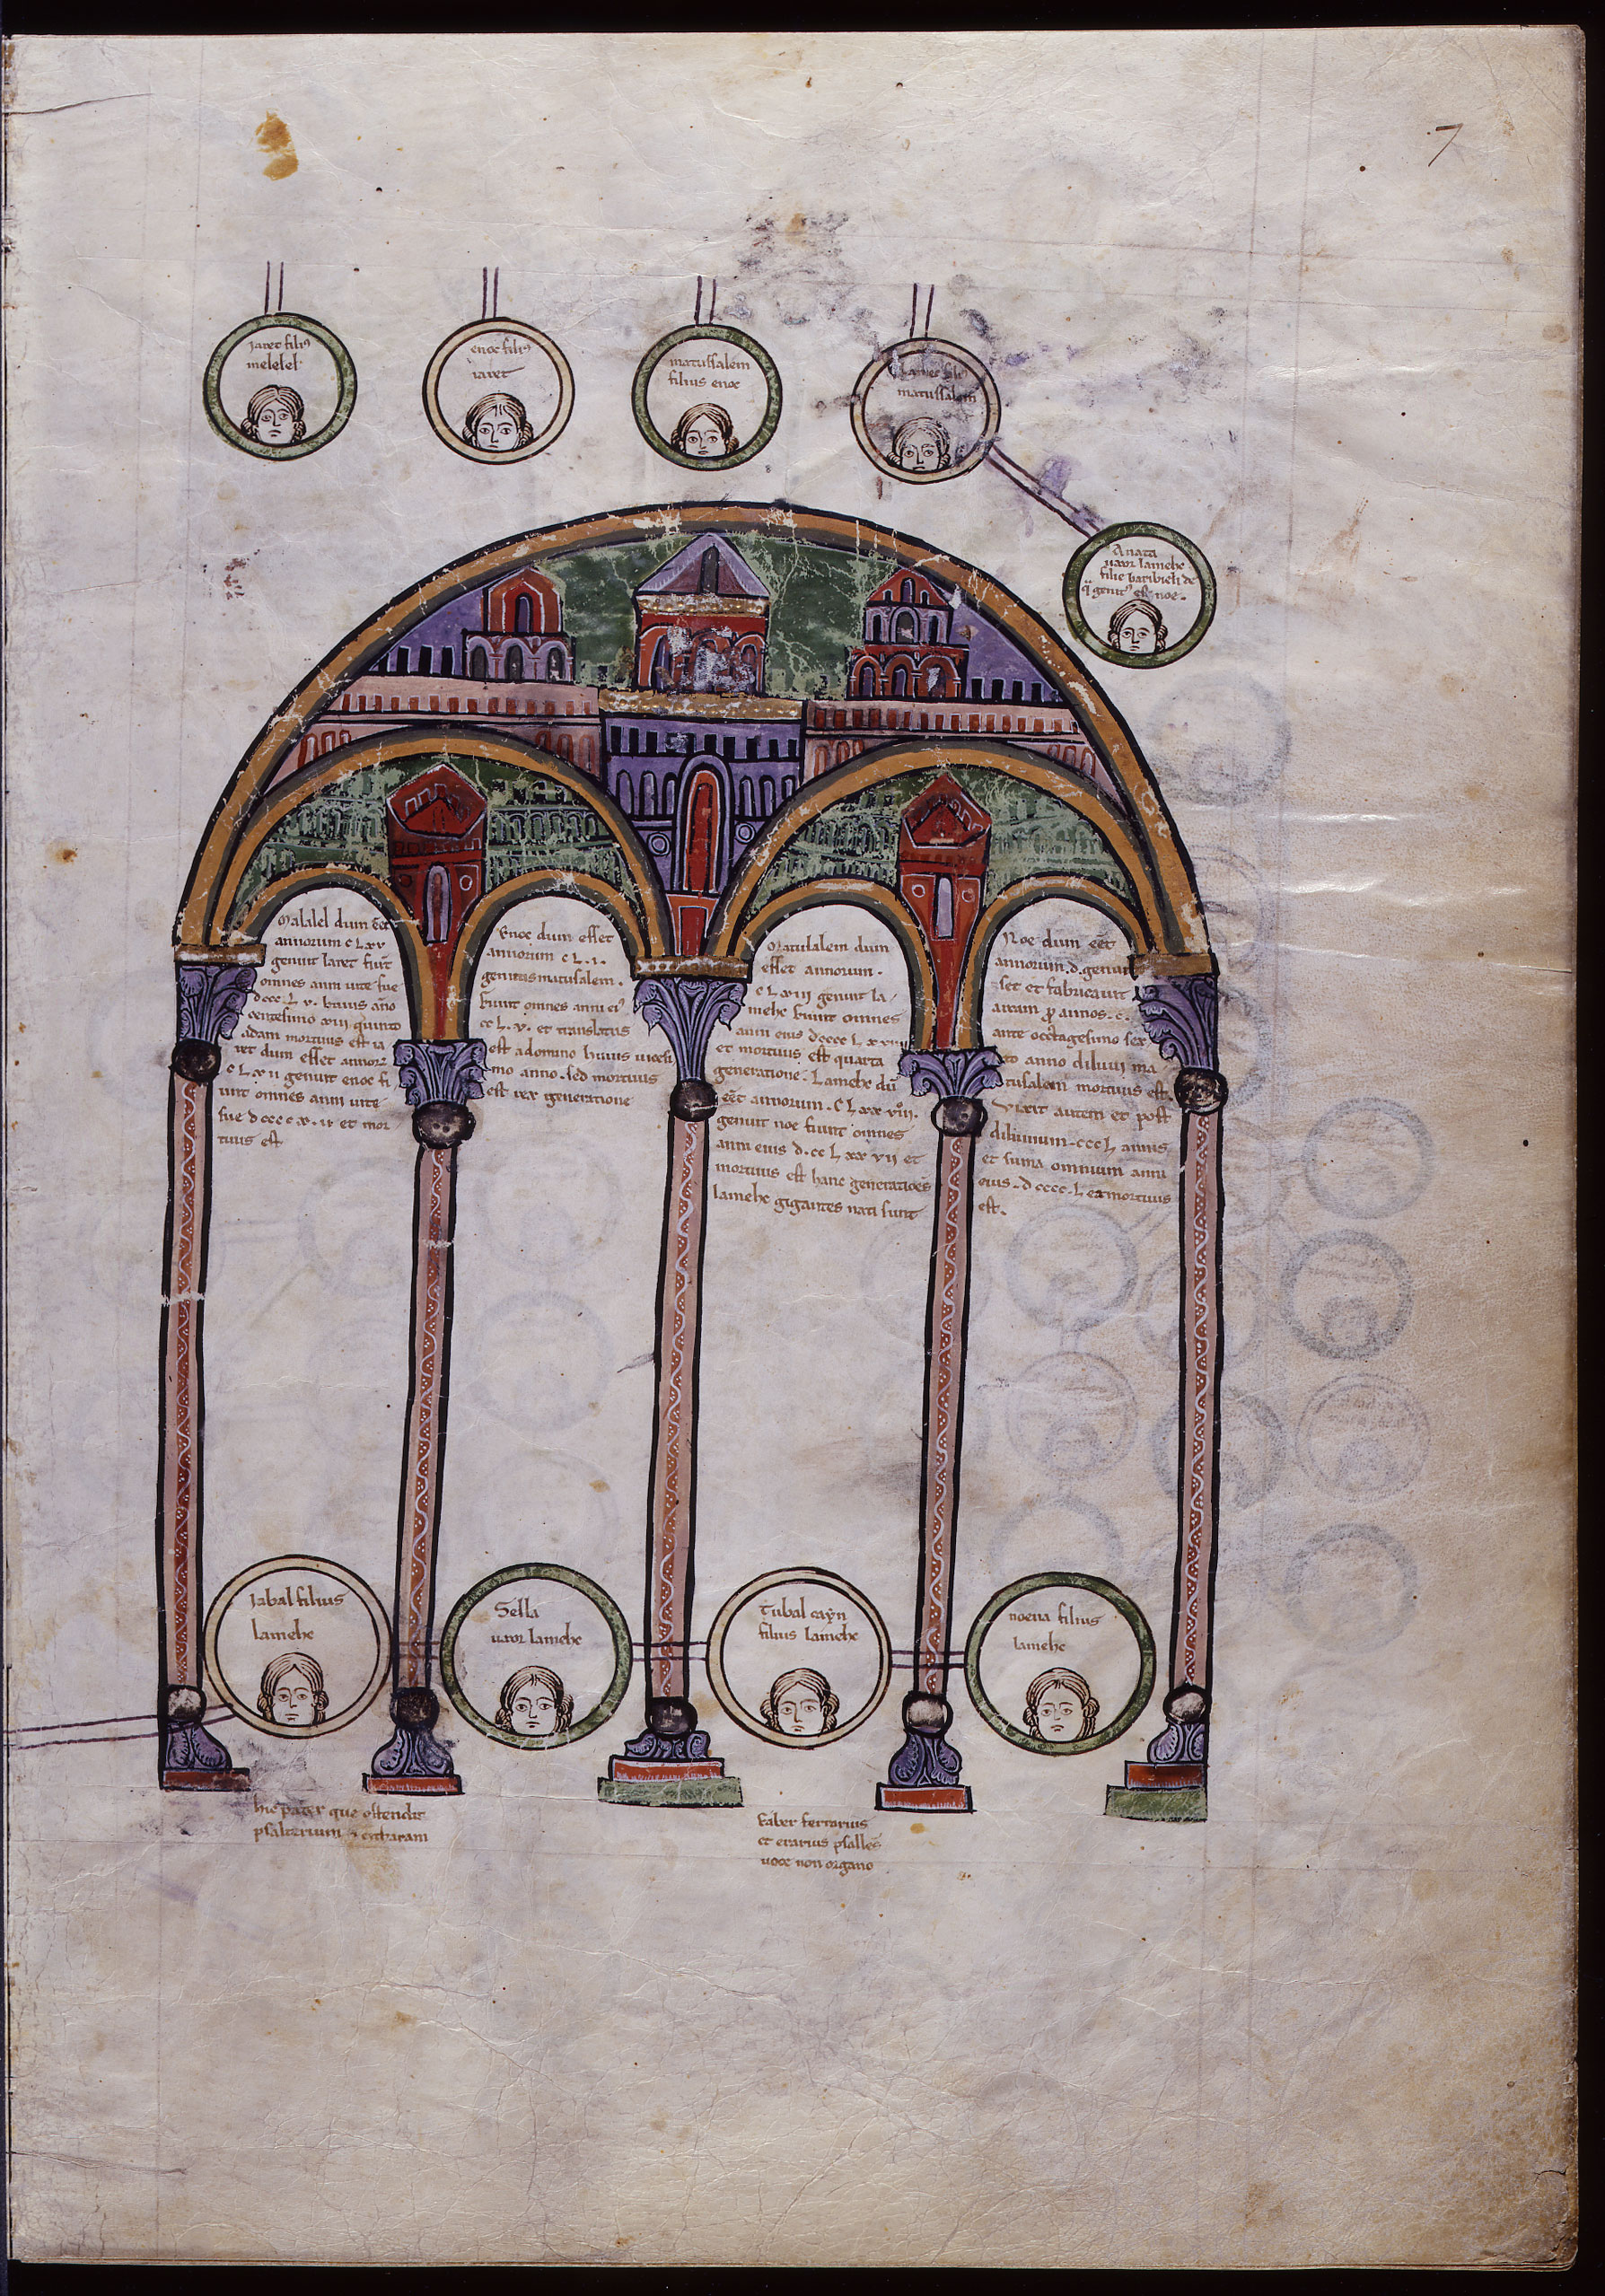 7
iaret filiꝰ
melelel
enoc filiꝰ
iaret
matussalem
filius enoc
lamec fili
matussalem
Anata
uxor lamehc
filie baribieli de
genitꝰ est noe.
Malalel dum eēt
annorum c lxv
genuit laret fiūt
omnes anni uite sue
dccc l v. huius año
centesimo xiii quinto
adam mortuus est ia
ret dum esset annorr
c l x ii genuit enoc fi
unt omnes anni uite
sue dcccc x. ii et mor
tuus est
Enoc dum esset
annorum c l. i.
genuit matusalem.
fiunt omnes anni eiꝰ
cc l. v. et translatus
est adomino huius
mo anno. sed mortuus
est generatione
Matusalem dum
esset annorum.
c l xiii genuit la
mehc fiunt omnes
anni eius dcccc l x
et mortuus est quarta
generatione. Lamehc dū
eēt annorum. C l xxx viii.
genuit noe fiunt omnes
anni eius d. cc l xx vii et
mortuus est hanc generatioēs
lamehc gigantes nati sunt
Noe dum eēt
annorum. d. genuit
set et fabricauit
arcam annos. c.
ante octagesimo sex
to anno diluuii ma
tusalem mortuus est.
Vixit autem et post
diluuium. ccc l annis
et suma omnium anni
eius. dcccc. l et mortuus
est.
Iabal filius
lamehc
Sella
uxor lamehc
Tubal cayn
filius lamehc
noema filius
lamehc
hic pater que ostendit
psalterium & citharam
Faber ferrarius
et erarius psalles
uoce non organo